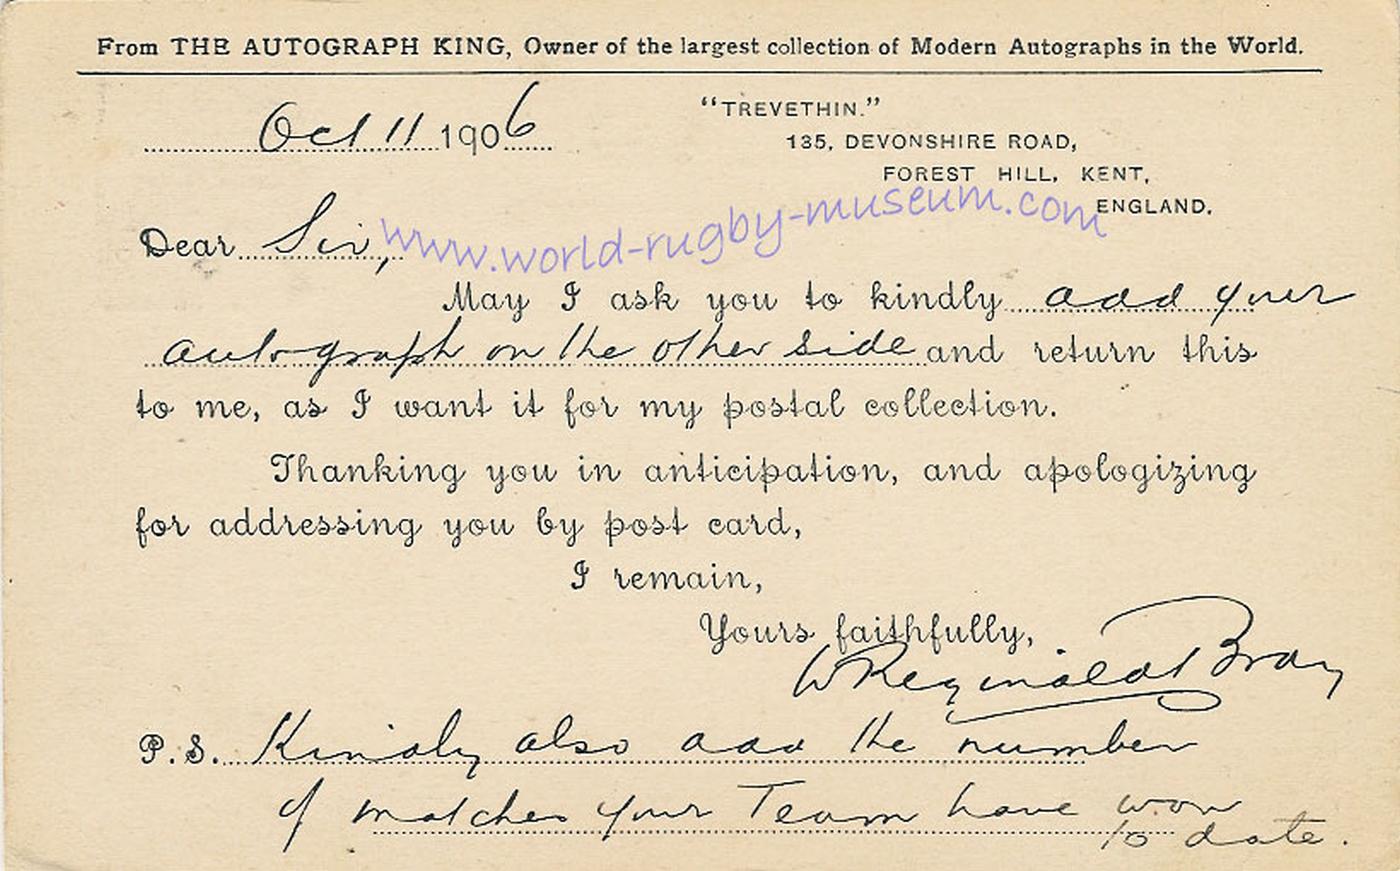 From THE AUTOGRAPH KING, Owner of the largest collection of Modern Autographs in the World.
Oct 11 1906
"TREVETHIN."
135, DEVONSHIRE ROAD,
FOREST HILL, KENT,
ENGLAND.
Dear Sir,
www.world-rugby-museum.com
May I ask you to kindly add your
autograph on the other side and return this
to me, as I want it for my postal collection.
Thanking you in anticipation, and apologizing
for addressing you by post card,
I remain,
Yours faithfully,
W Reginald Bray
P.S. Kindly also add the number
of matches your Team have won
to date.